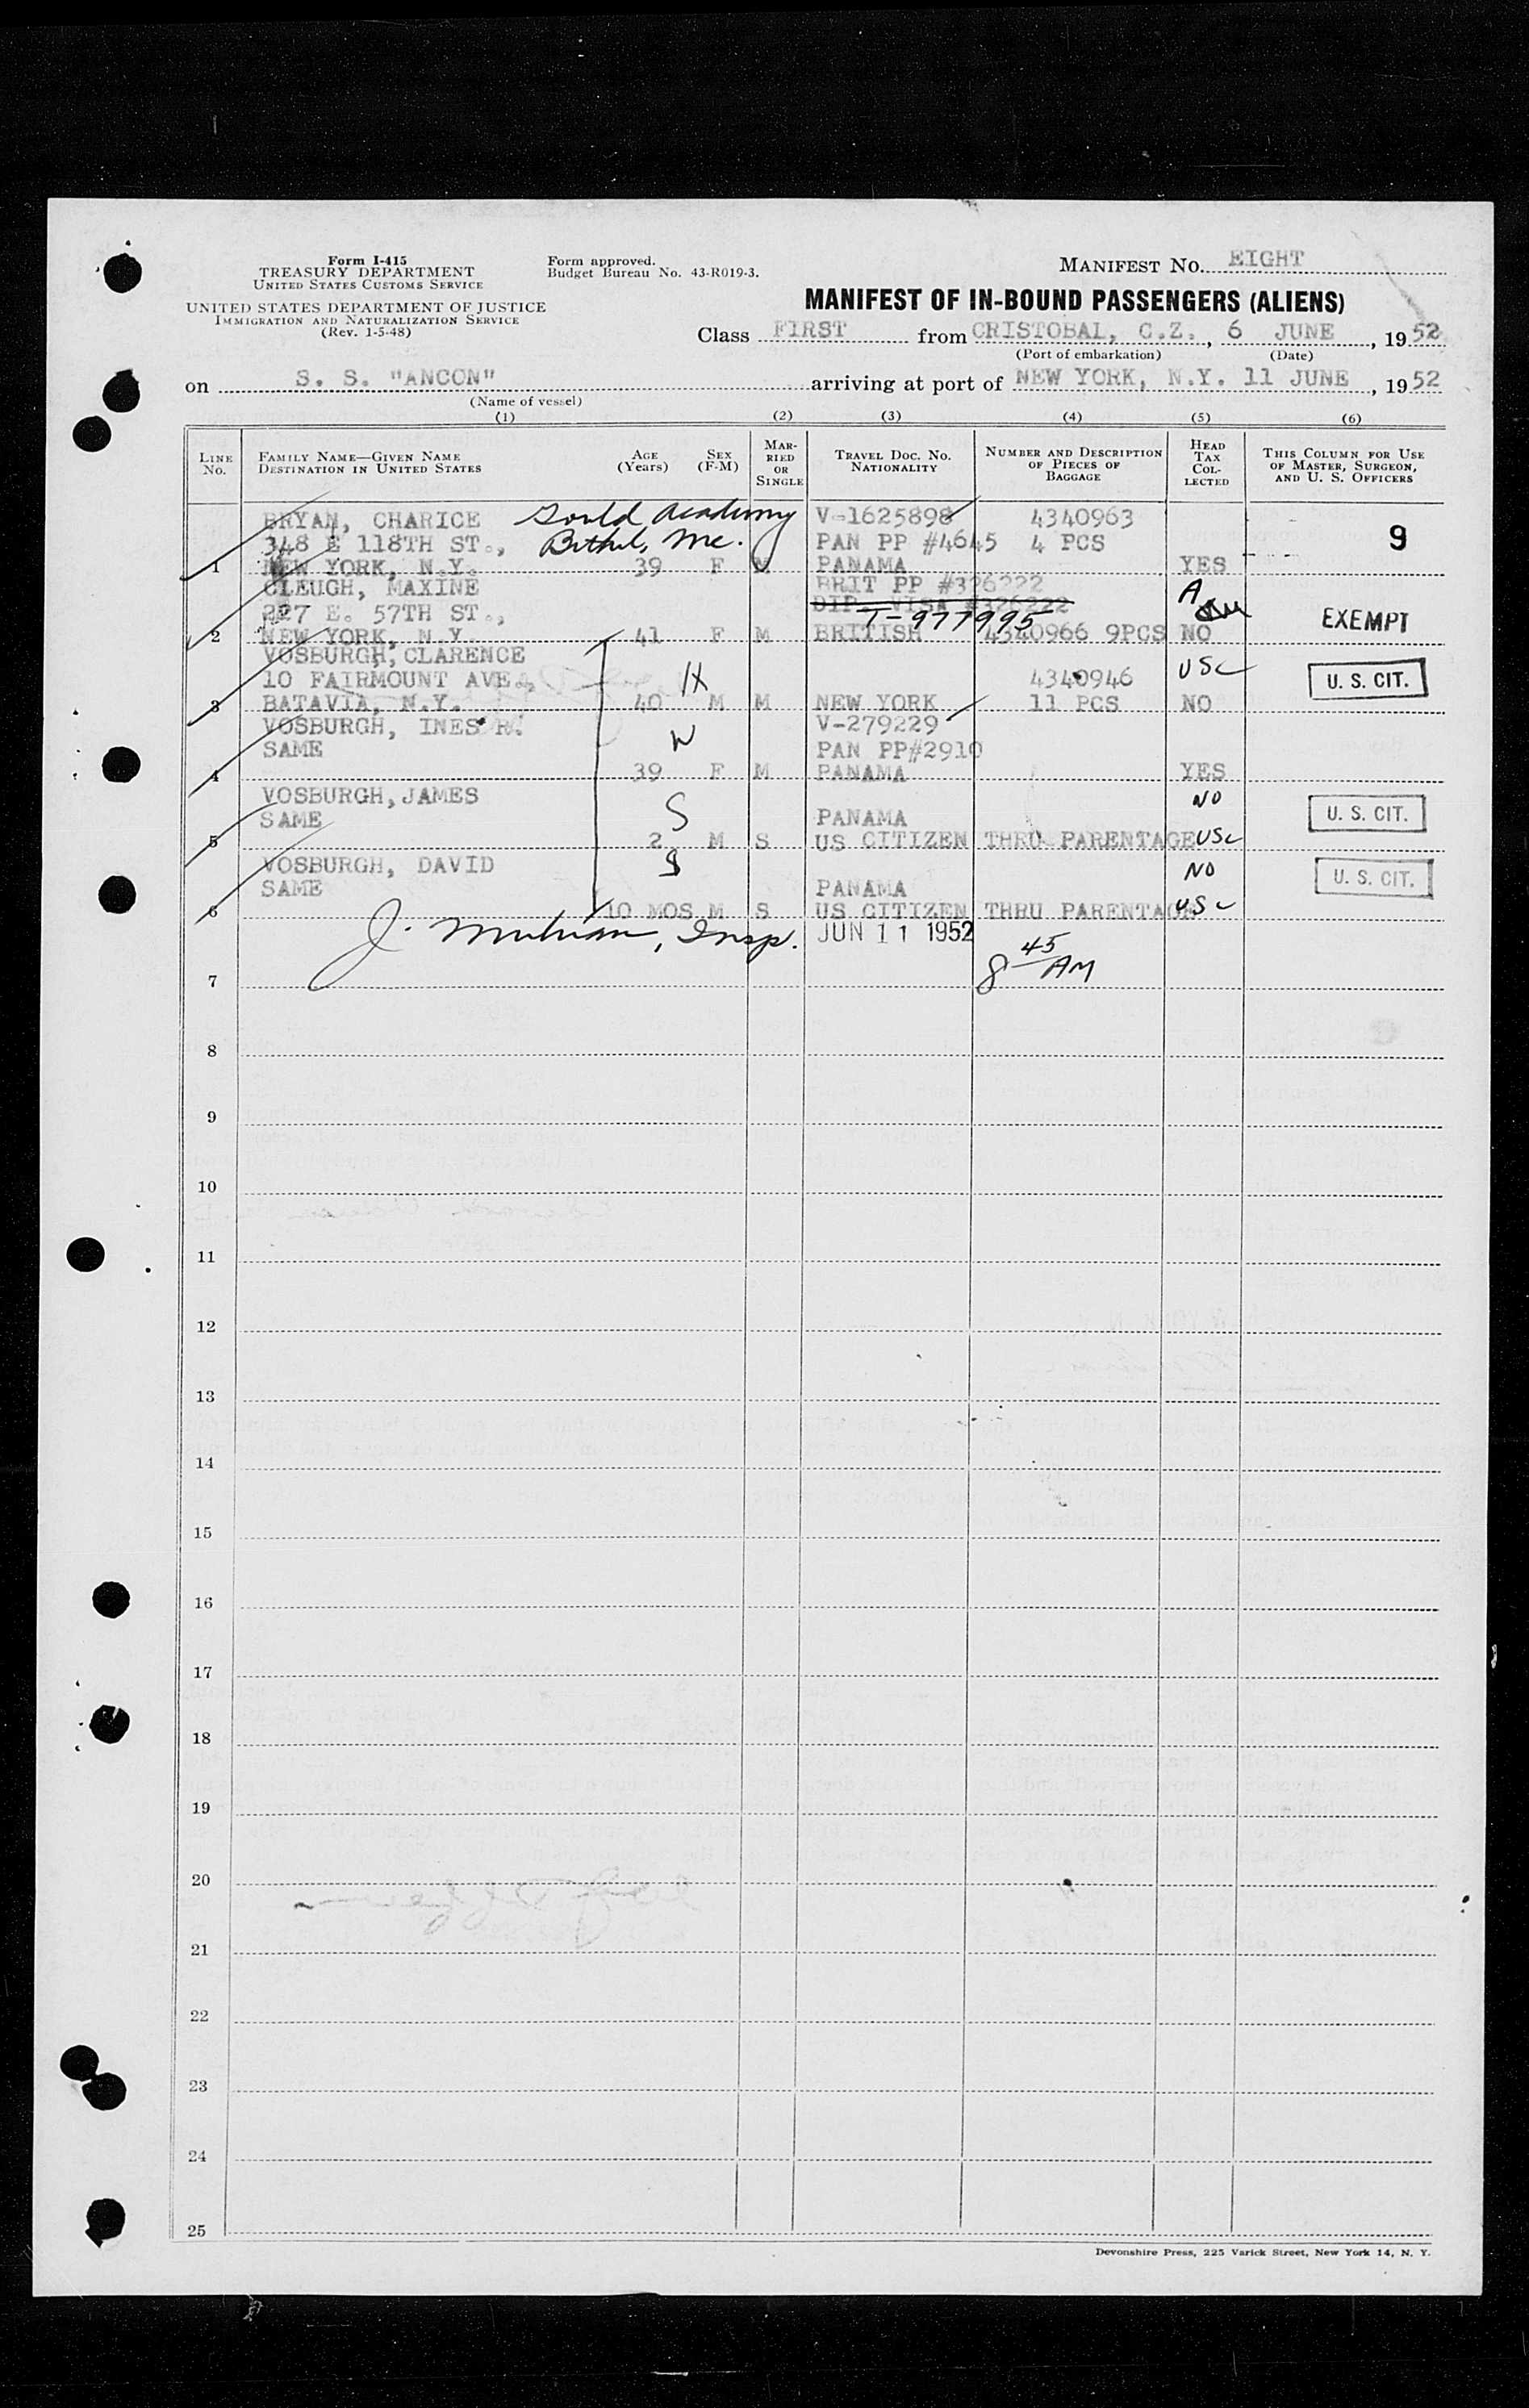 Form I-415
TREASURY DEPARTMENT
UNITED STATES CUSTOMS SERVICE
UNITED STATES DEPARTMENT OF JUSTICE
IMMIGRATION AND NATURALIZATION SERVICE
(Rev. 1-5-48)
Form approved.
Budget Bureau No. 43-R019-3.
MANIFEST NO. EIGHT
MANIFEST OF IN-BOUND PASSENGERS (ALIENS)
Class FIRST from CRISTOBAL, C.Z., 6 JUNE, 1952
(Port of embarkation) (Date)
on S. S. "ANCON" arriving at port of NEW YORK, N.Y. 11 JUNE, 1952
(Name of vessel)
(1) (2) (3) (4) (5) (6)
LINE No. FAMILY NAME—GIVEN NAME DESTINATION IN UNITED STATES AGE (Years) SEX (F-M) MARRIED OR SINGLE TRAVEL DOC. NO. NATIONALITY NUMBER AND DESCRIPTION OF PIECES OF BAGGAGE HEAD TAX COLLECTED THIS COLUMN FOR USE OF MASTER, SURGEON, AND U. S. OFFICERS
BRYAN, CHARICE Gould Academy V-1625898 4340963
348 E 118TH ST., Bethel, Me. PAN PP #4645 4 PCS 9
1 NEW YORK, N.Y. 39 F M PANAMA YES
CLEUGH, MAXINE BRIT PP #326222
227 E. 57TH ST., DIP. VISA #326222 A
T-977995 EXEMPT
2 NEW YORK, N.Y. 41 F M BRITISH 4340966 9PCS NO
VOSBURGH, CLARENCE USC
10 FAIRMOUNT AVE., H 4340946 U. S. CIT.
3 BATAVIA, N.Y. 40 M M NEW YORK 11 PCS NO
VOSBURGH, INES R. V-279229
SAME W PAN PP#2910
4 39 F M PANAMA YES
VOSBURGH, JAMES S NO
SAME PANAMA U. S. CIT.
5 2 M S US CITIZEN THRU PARENTAGE USC
VOSBURGH, DAVID S NO
SAME PANAMA U. S. CIT.
6 10 MOS M S US CITIZEN THRU PARENTAGE USC
J. Insp. JUN 11 1952
8 45 AM
7
8
9
10
11
12
13
14
15
16
17
18
19
20
21
22
23
24
25
Devonshire Press, 225 Varick Street, New York 14, N. Y.